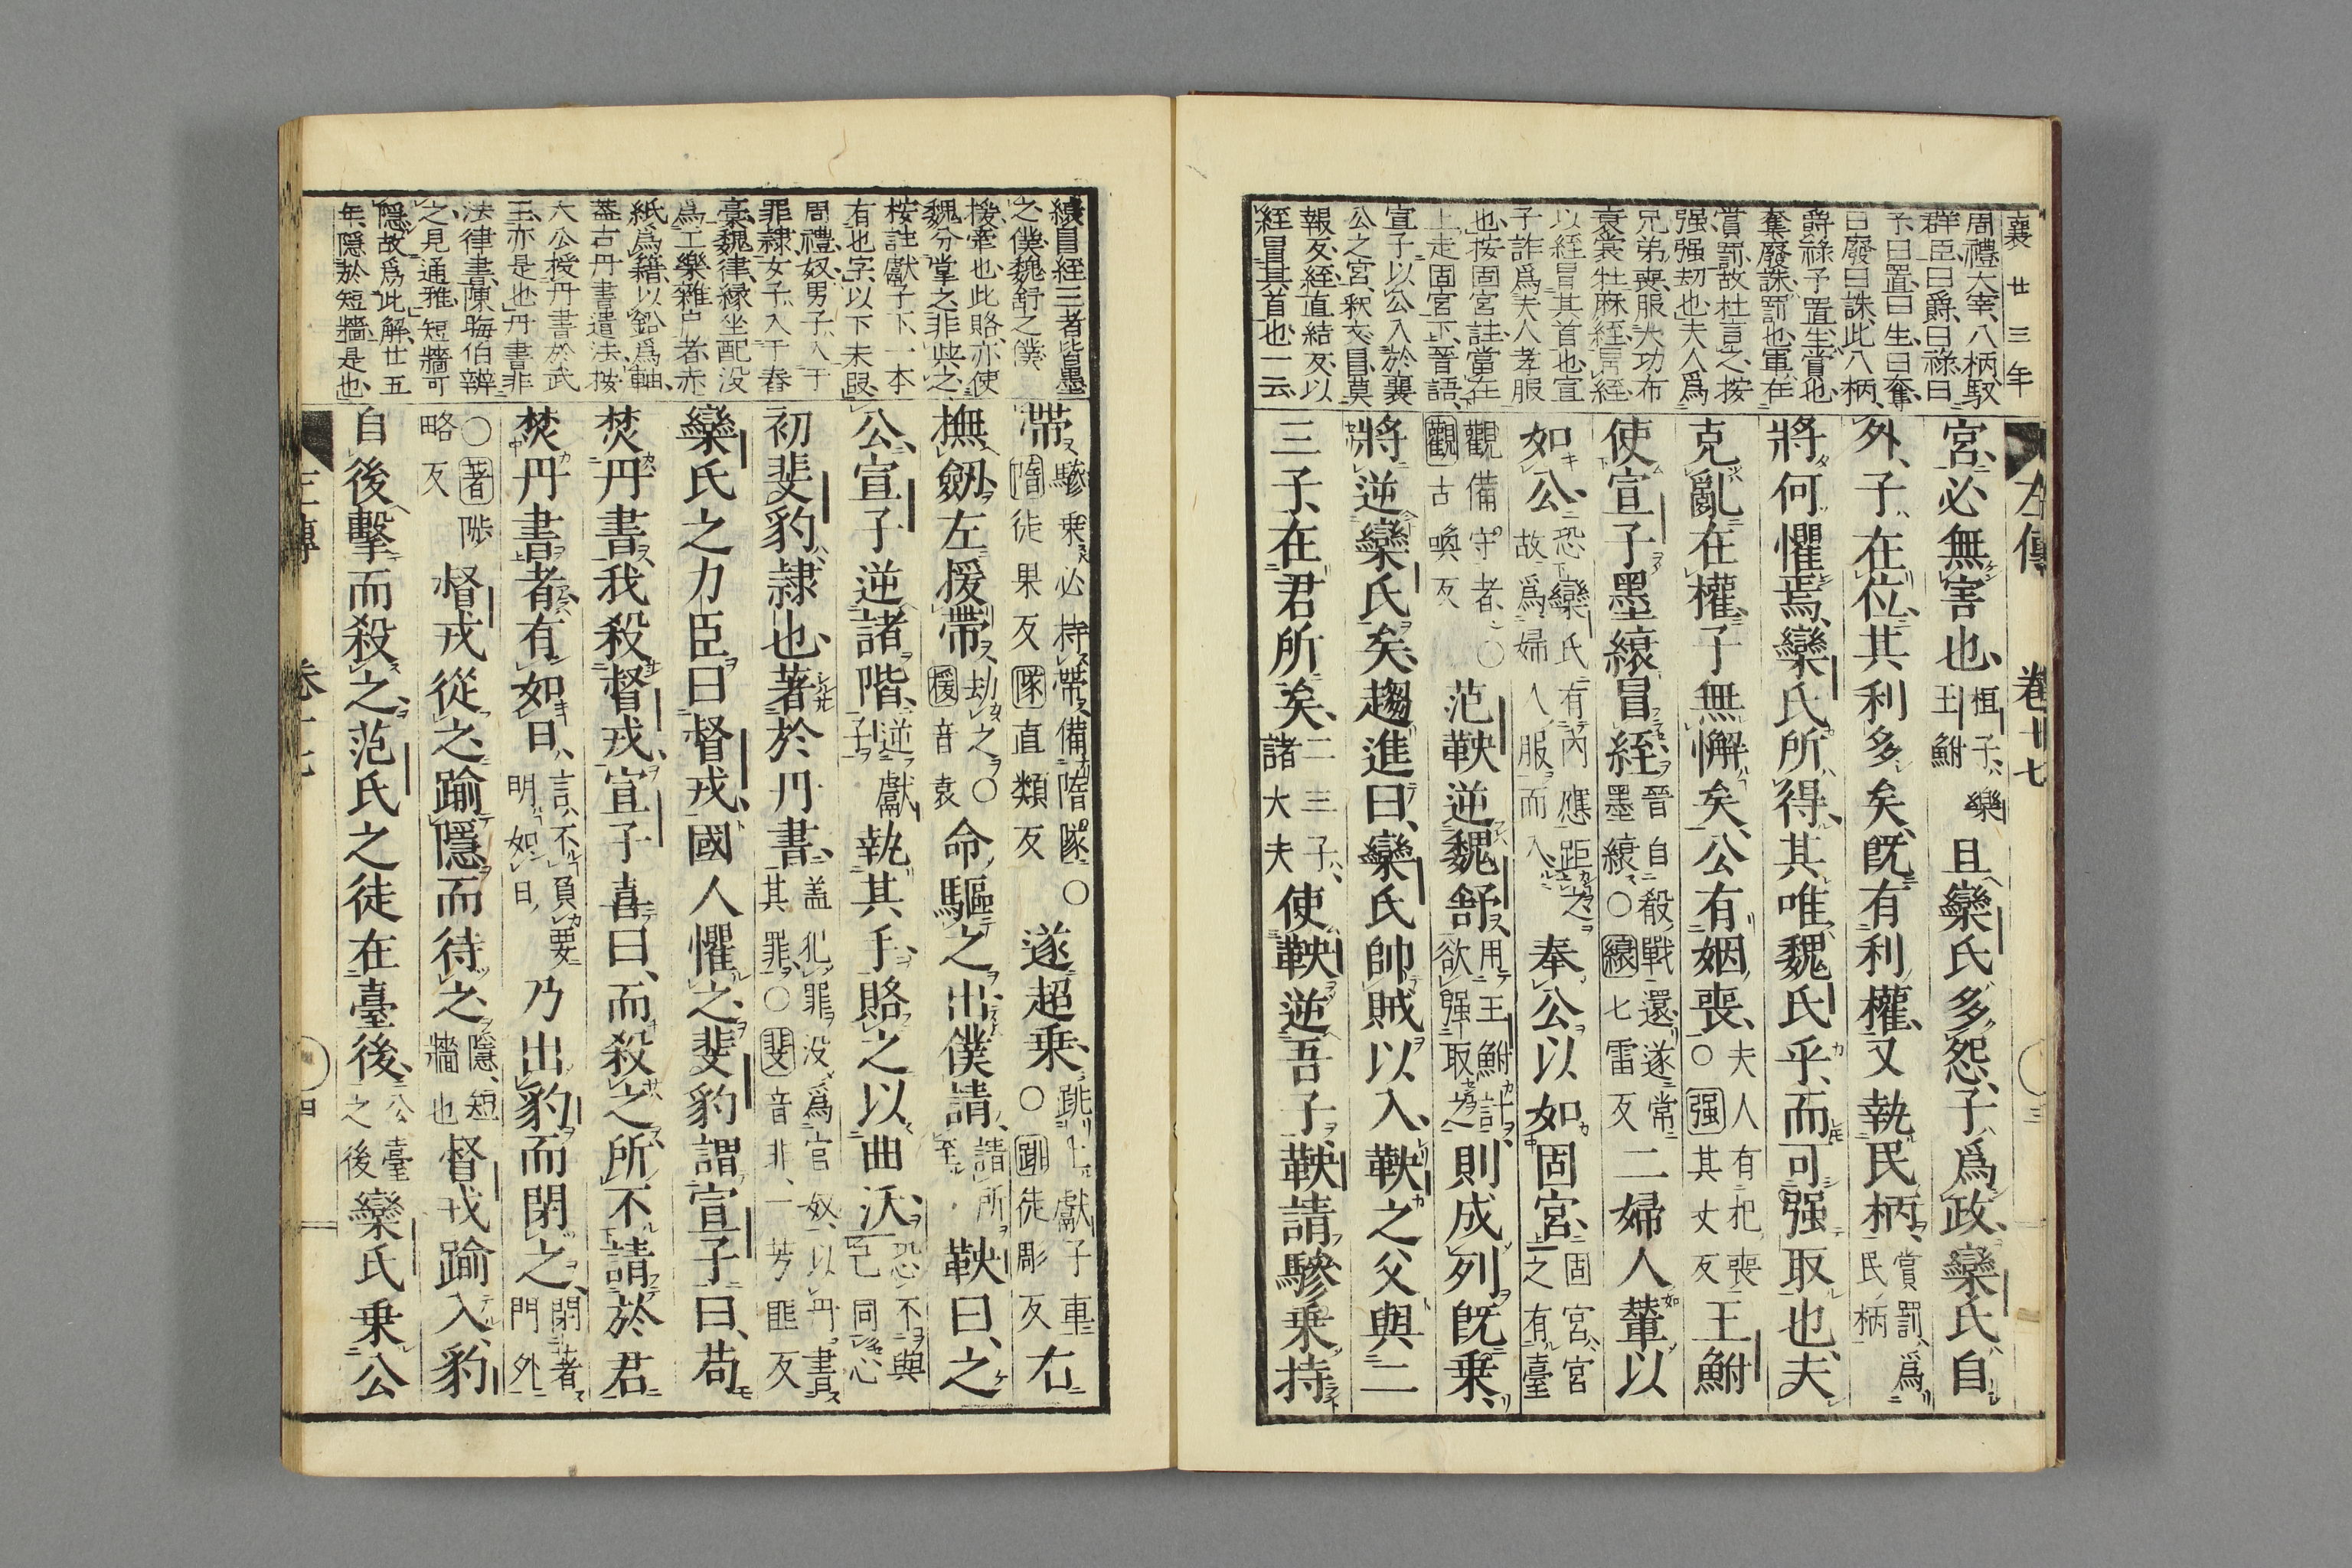 襄廿三年
周禮大宰八柄馭
群臣曰爵曰祿曰
予曰置曰生曰奪
曰廢曰誅此八柄
爵祿予置生賞也
奪廢誅罰也軍在
賞罰故杜言之按
强强劫也夫人爲
兄弟喪服大功布
衰裳牡麻絰冒絰
以絰冒其首也宣
子詐爲夫人孝服
也按固宮註當在
上走固宮下晉語
宣子以公入於襄
公之宮釈文冒莫
報反絰直結反以
絰冒其首也一云
左傳 卷十七 三
宮必無害也桓子樂王鮒且欒氏多怨子爲政欒氏自
外子在位其利多矣既有利權又執民柄賞罰爲民柄
將何懼焉欒氏所得其唯魏氏乎而可强取也夫
克亂在權子無懈矣公有姻喪夫人有杞喪○强其丈反王鮒
使宣子墨縗冒絰晉自殽戰還遂常墨縗○縗七雷反二婦人輦以
如公恐欒氏有內應距之故爲婦人服而入奉公以如固宮固宮宮之有臺
觀備守者○觀古喚反范鞅逆魏舒用王鮒計欲强取之則成列既乗
將逆欒氏矣趨進曰欒氏帥賊以入鞅之父與二
三子在君所矣二三子諸大夫使鞅逆吾子鞅請驂乗持
縗冒絰三者皆墨
之僕魏舒之僕
援牽也此賂亦使
魏分掌之非與之
桉註獻子下一本
有也字以下未毀
周禮奴男子入于
罪隷女子入于舂
槀魏律緣坐配没
爲工樂雜户者赤
紙爲籍以鉛爲軸
蓋古丹書遺法桉
大公授丹書於武
王亦是也丹書非
法律書陳晦伯辨
之見通雅短牆可
隱故爲此解廿五
年隱於短牆是也
帶驂乗必持帶備隋隊○隋徒果反隊直類反遂超乗跳上獻子車○跳徒彫反右
撫劒左援帶劫之○援音袁命驅之出僕請請所至鞅曰之
公宣子逆諸階逆獻子執其手賂之以曲沃恐不與已同心
初斐豹隷也著於丹書盖犯罪没爲官奴以丹書其罪○斐音非一芳匪反
欒氏之力臣曰督戎國人懼之斐豹謂宣子曰苟
焚丹書我殺督戎宣子喜曰而殺之所不請於君
焚丹書者有如日言不負要明如日乃出豹而閉之閉著門外
○著陟略反督戎從之踰隱而待之隱短牆也督戎踰入豹
自後擊而殺之范氏之徒在臺後公臺之後欒氏乗公
左傳 卷十七 四